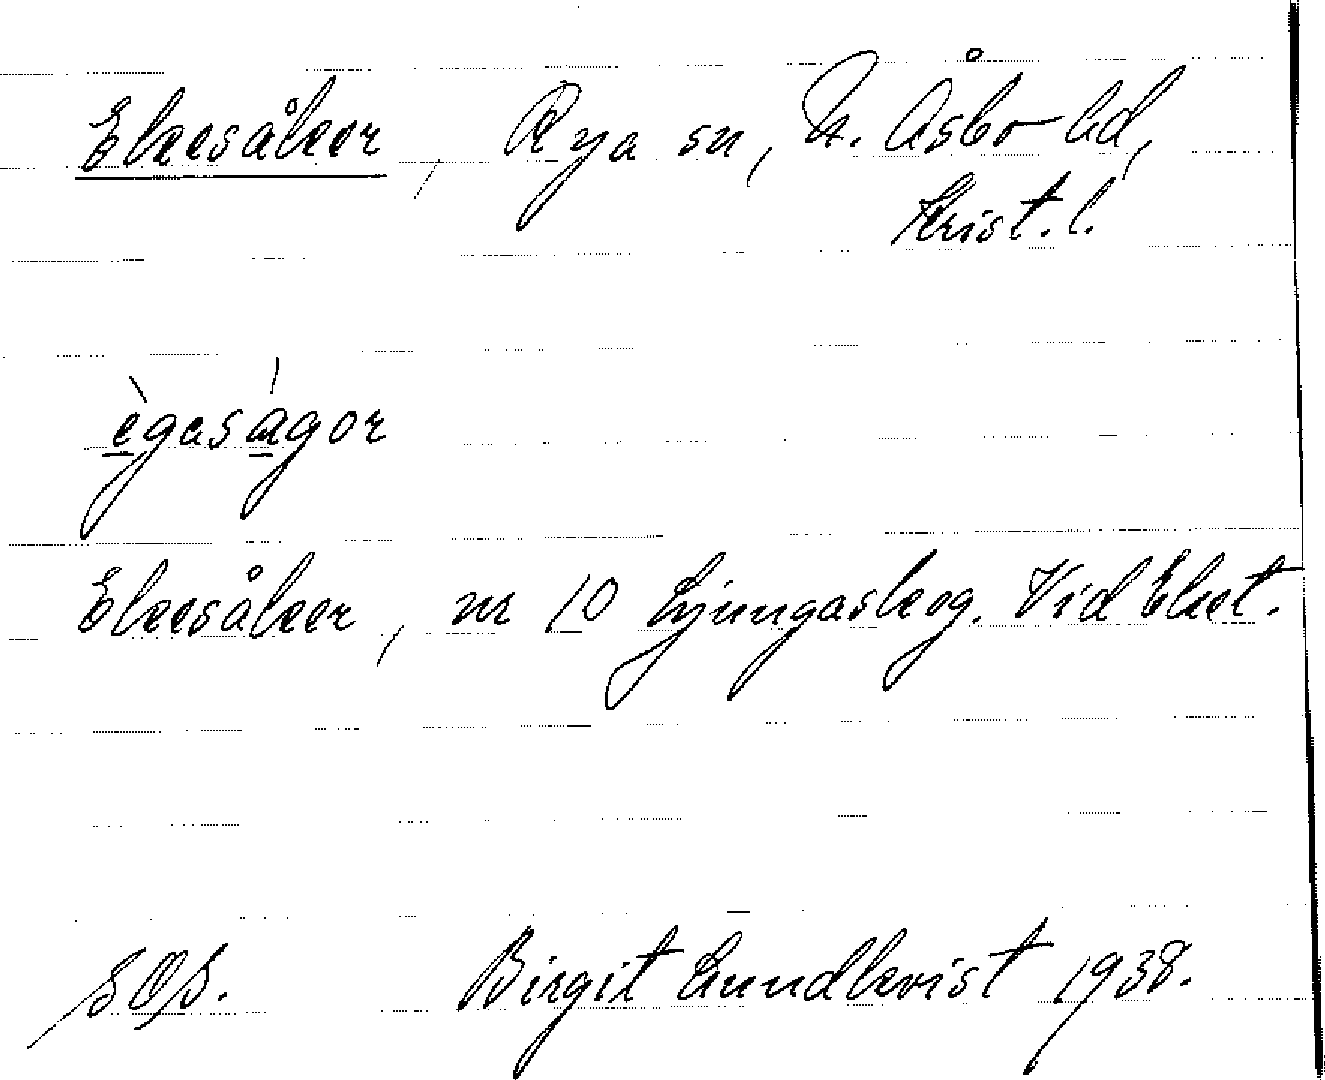 Ekesåker, Rya sn, N. Åsbo hd,
Krist. l.
ègasá̱gor
Ekesåker, nr 10 Ljungaskog. Vid Eket.
SOS. Birgit Lundkvist 1938.